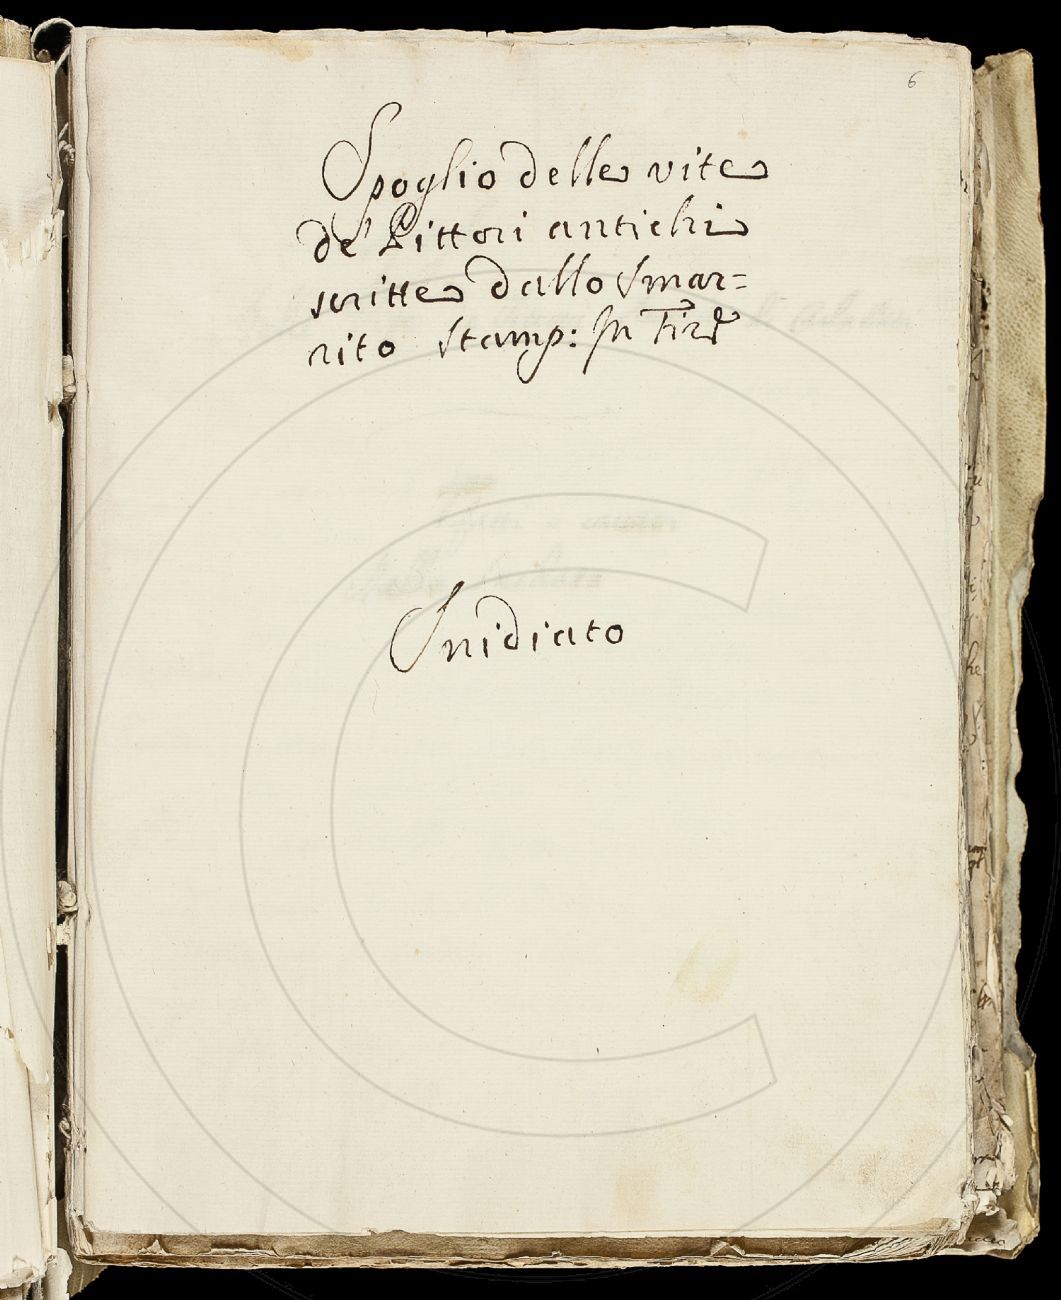 6
Spoglio delle vite
de' Pittori antichi
scritte dallo Smar=
rito Stamp: In Fir.e
Inidiato